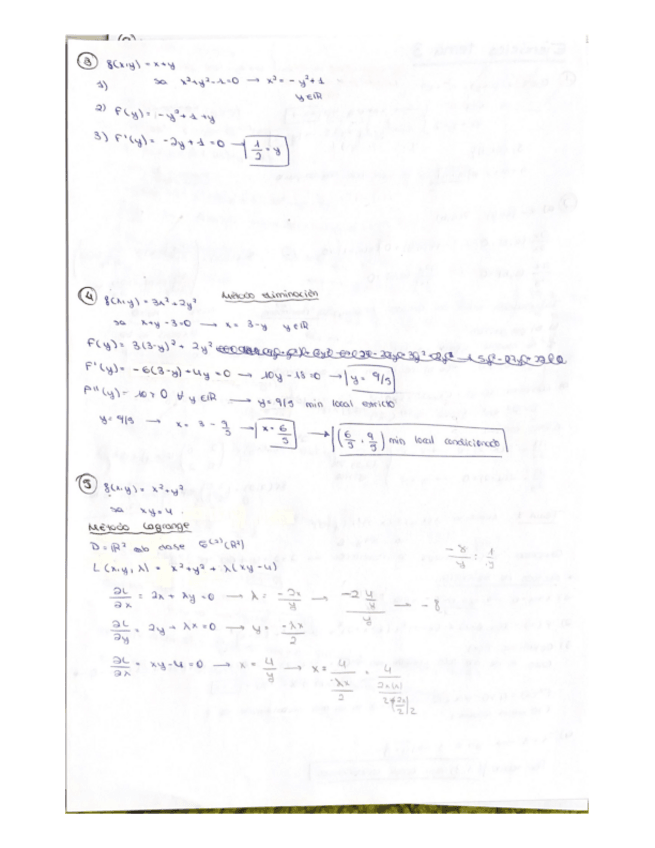 ③ f(x,y) = x+y
1) sa x²+y²-1=0 → x² = -y²+1
y∈ℝ
2) F(y) = -y²+1+y
3) F'(y) = -2y+1=0 → 1/2 = y
④ f(x,y) = 3x²+2y² Método eliminación
sa x+y-3=0 → x = 3-y y∈ℝ
F(y) = 3(3-y)² + 2y²
F'(y) = -6(3-y)+4y=0 → 10y-18=0 → y = 9/5
F''(y) = 10>0 ∀ y∈ℝ → y=9/5 min local estricto
y=9/5 → x = 3 - 9/5 → x = 6/5 → (6/5, 9/5) min local condicionado
⑤ f(x,y) = x²+y²
sa xy=4
Método Lagrange
D=ℝ² ab clase (ℝ²)
L(x,y,λ) = x²+y² + λ(xy-4)
∂L/∂x = 2x + λy = 0 → λ = -2x/y → → -8
∂L/∂y = 2y + λx = 0 → y = -λx/2
∂L/∂λ = xy-4=0 → x = 4/y → x =